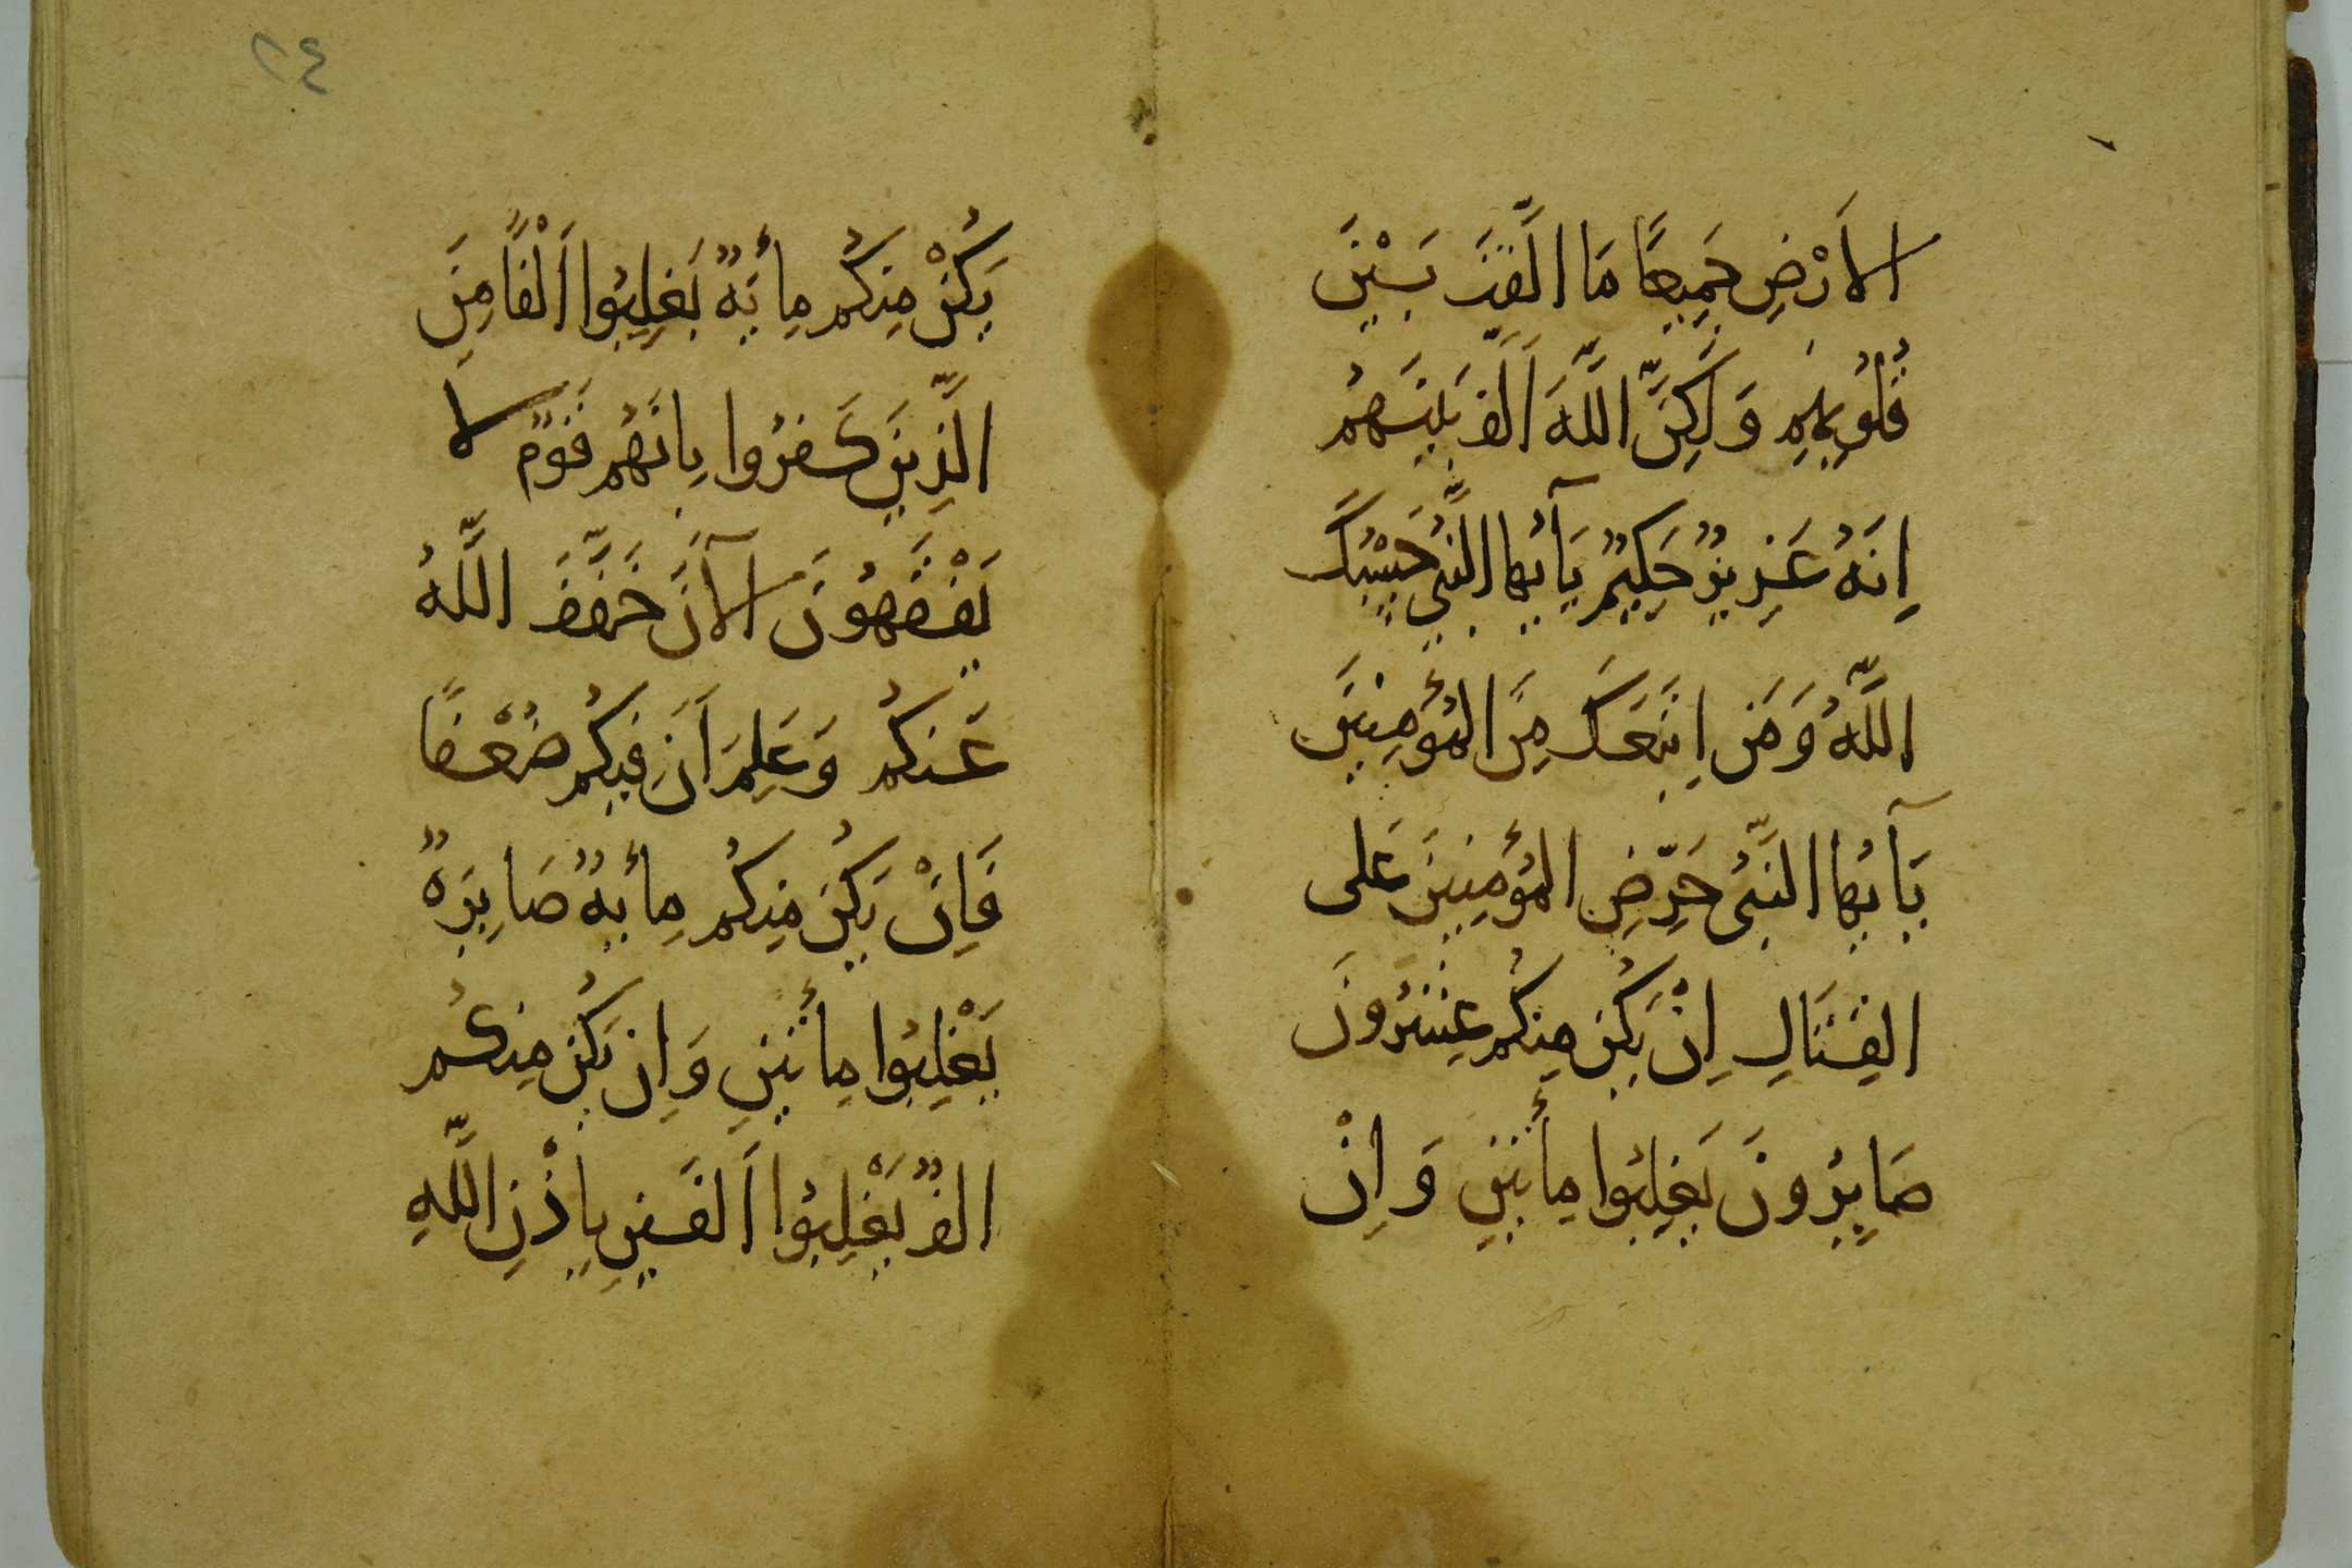 الاَرْضِ جَمِيعًا مَا اَلَّفْتَ بَيْنَ
قُلُوبِهِم وَلَكِنَّ اللَّهَ اَلَّفَ بَيْنَهُم
اِنَّهُ عَزِيزٌ حَكِيمٌ يَآ اَيُّهَا النَّبِيُّ حَسْبُكَ
اللَّهُ وَمَنِ اتَّبَعَكَ مِنَ الْمُؤْمِنِينَ
يَآ اَيُّهَا النَّبِيُّ حَرِّضِ الْمُؤْمِنِينَ عَلَى
القِتَالِ اِنْ يَكُن مِنكُم عِشْرُونَ
صَابِرُونَ يَغلِبُوا مِأَتَينِ وَاِنْ
٢٤
يَكُنْ مِنكُم مِأَيَةٌ يَغلِبُوا اَلْفًا مِنَ
الَّذِينَ كَفَرُوا بِاَنَهُم قَومٌ لَا
يَفْقَهُونَ الآنَ خَفَّفَ اللَّهُ
عَنكُم وَعَلِمَ اَنَّ فِيكُم ضُعْفًا
فَاِنْ يَكُن مِنكُم مِأيةٌ صَابِرَةٌ
يَغْلِبُوا مِأَتَينِ وَاِن يَكُن مِنكُم
اَلفٌ يَغْلِبُوا اَلفَينِ بِاِذْنِ اللَّهِ